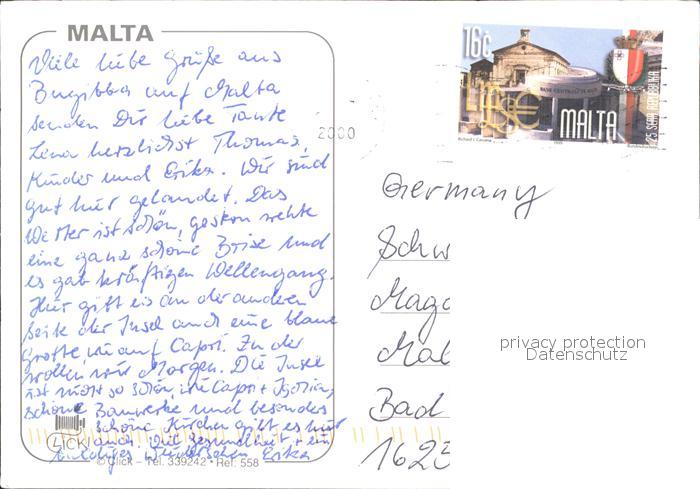 MALTA
Viele liebe Grüße aus
Bugibba auf Malta
senden Dir liebe Tante
Lena herzlichst Thomas,
Kinder und Erika. Wir sind
gut hier gelandet. Das
Wetter ist schön, gestern wehte
eine ganz schöne Brise und
es gab kräftigen Wellengang.
Hier gibt es an der anderen
Seite der Insel auch eine blaue
Grotte wie auf Capri. Zu der
wollen wir Morgen. Die Insel
ist nicht so schön, wie Capri + Ischia,
schöne Bauwerke und besonders
schöne Kirchen gibt es hier
auch. Gesundheit + ein
baldiges Wiedersehen Erika
CLICK
© Click – Tel. 339242 • Ref. 558
2000
16c
MALTA
25 SENA REPUBBLIKA
Germany
Schw
Magd
Mal
Bad
1623
privacy protection
Datenschutz